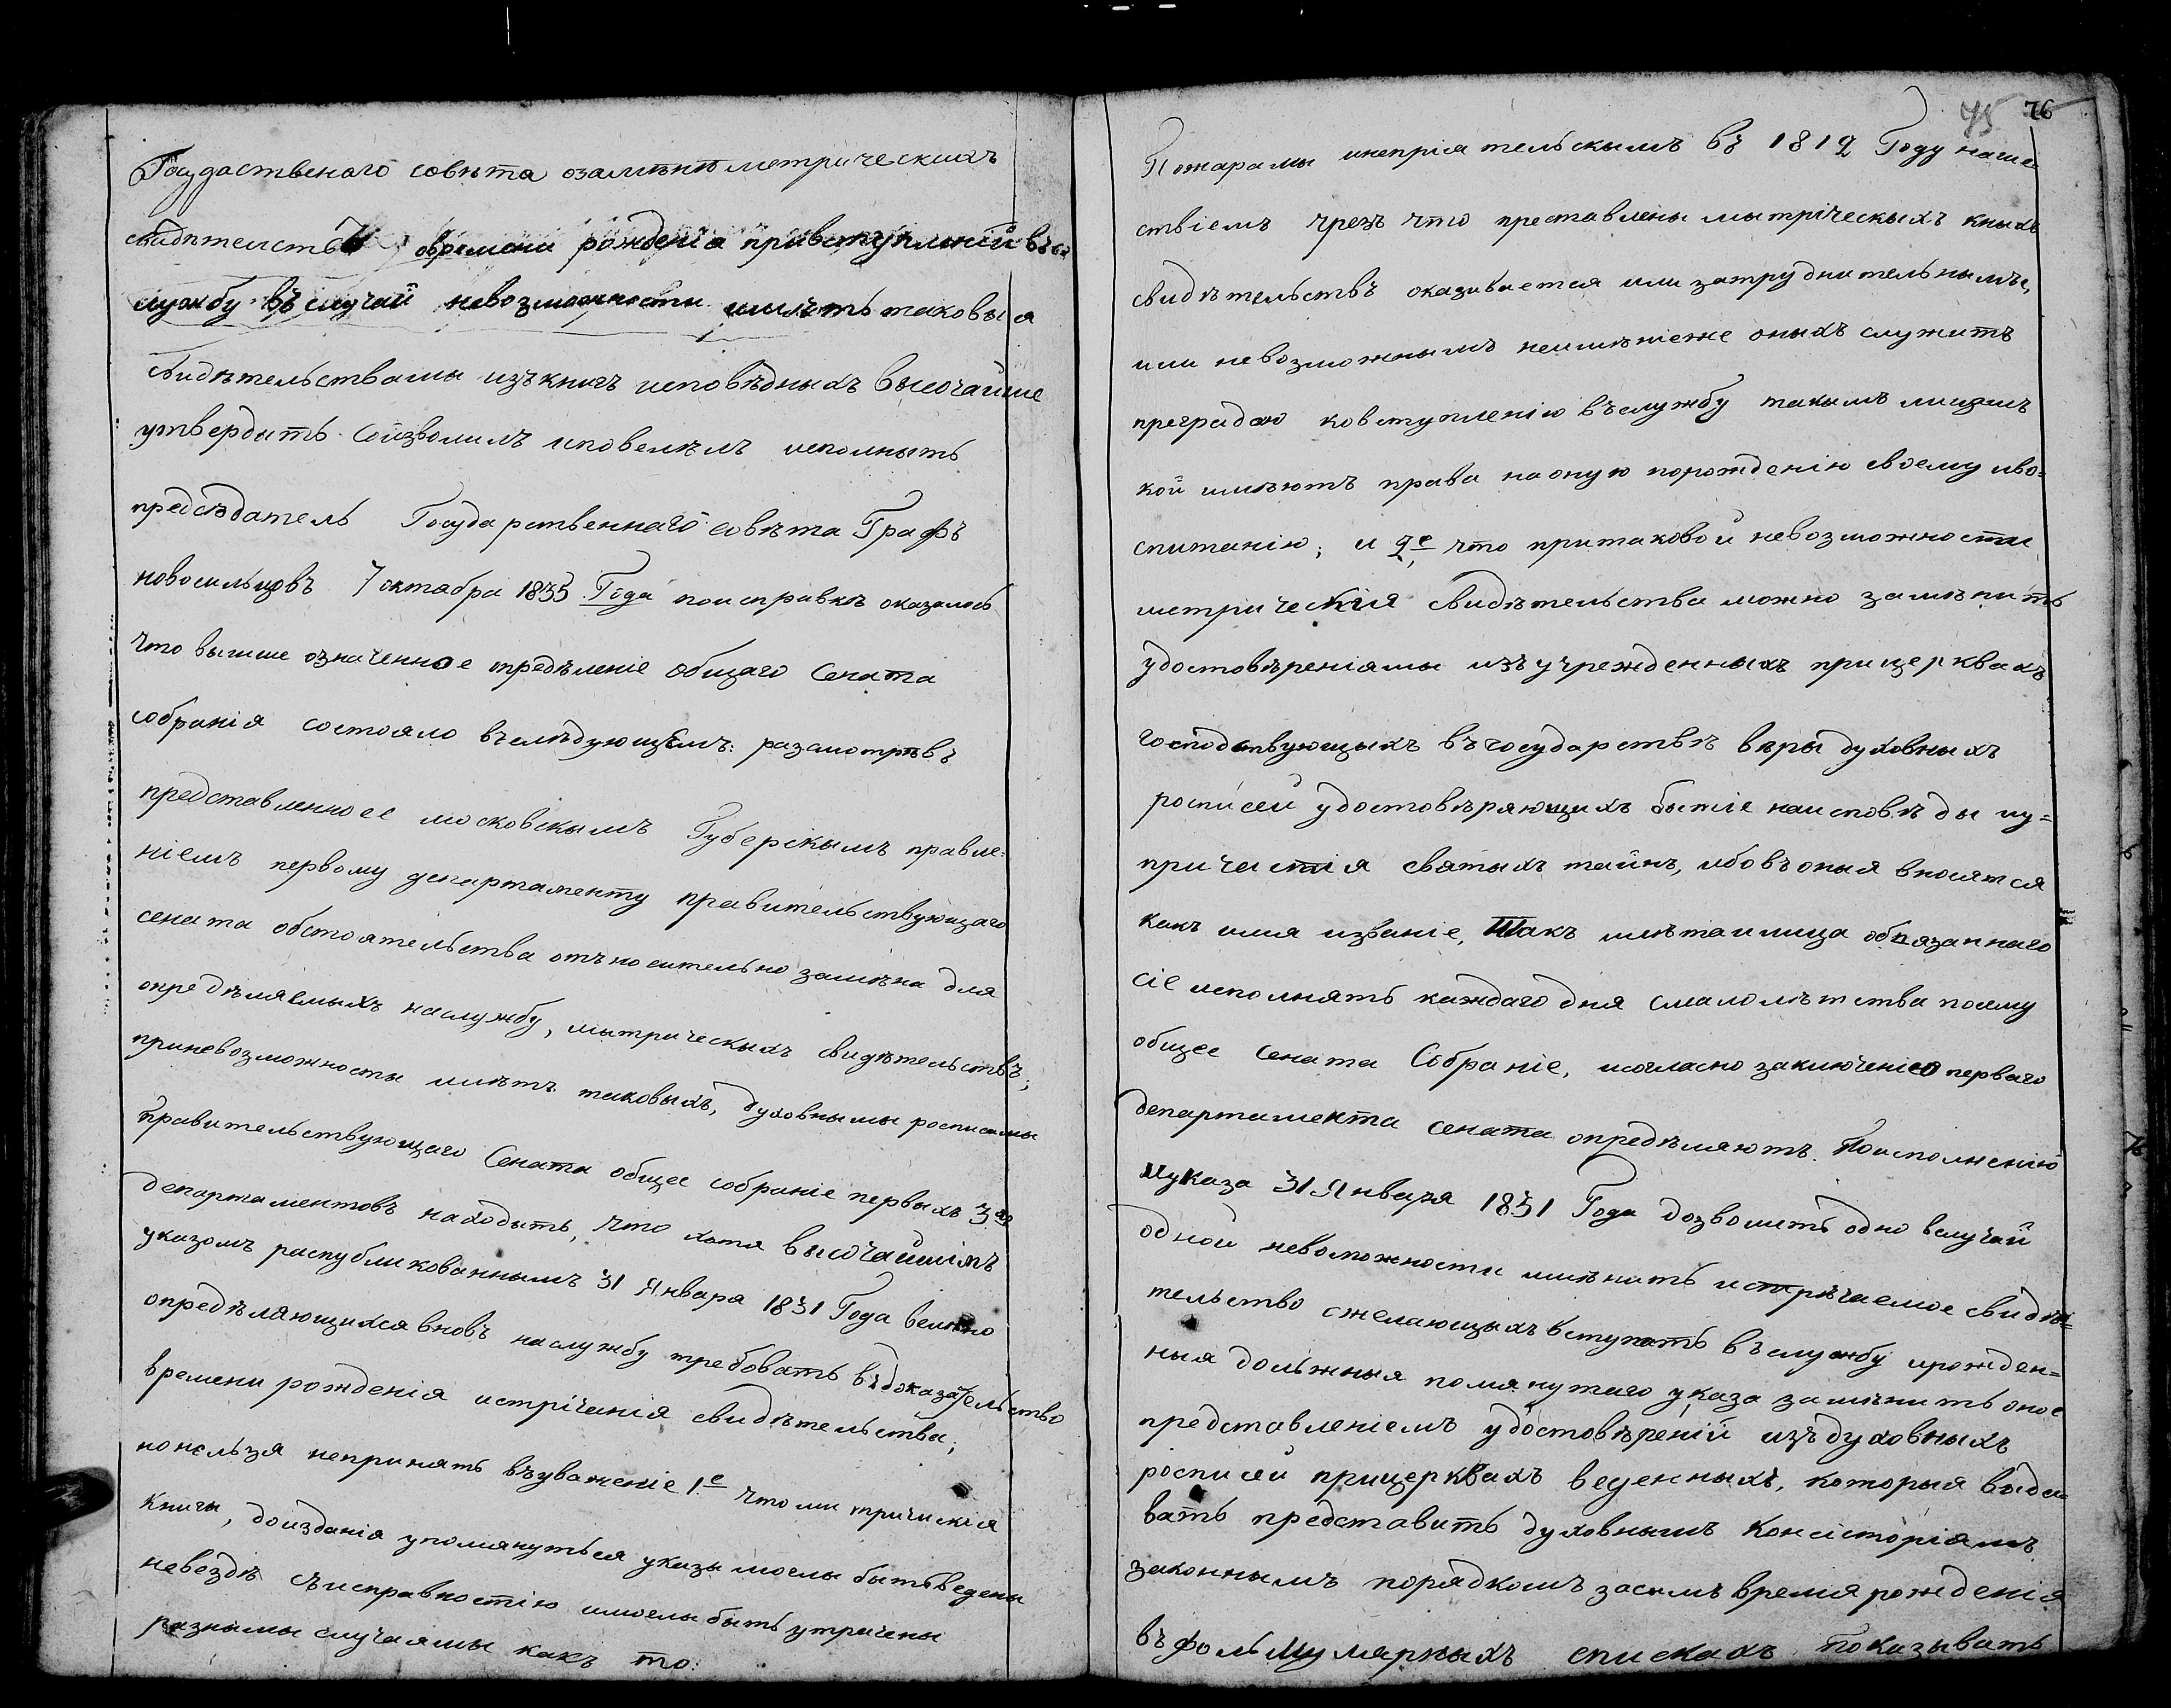 Госудаственаго совѣта озамѣнѣ метрическихъ
свидѣтельствъ овремени рожденія привступленіи въ
службу въ случаи невозможности имѣть таковыя
свидѣтельствамы изъ книгъ исповѣдныхъ высочайше
утвердить соизволилъ иповелѣлъ исполныть
предсѣдатель Государственнаго совѣта Графъ
новосильцовъ 7 октабра 1835 Года поисправкѣ оказалось
что вышше означенное опредѣленіе общаго Сената
собранія состояло вслѣдующемъ: разсмотрѣвъ
представленное московскымъ Губерскымъ правле-
ніемъ первому департаменту правительствующаго
сената обстоятельства отъносительно замѣна для
опредѣляемыхъ наслужбу, мытрическыхъ свидѣтельствъ,
приневозможносты имѣть таковыхъ, духовнымы росписямы
правительствующаго Сената общее собраніе первыхъ 3хъ
департаментовъ находыть, что хотя высочайшімъ
указомъ распубликованнымъ 31 Января 1831 Года велѣно
опредѣляющихся вновъ наслужбу требовать въдоказательство
времени рожденія истрічанія свидѣтельства;
нонельзя непринять въуваженіе 1е что ми тричискія
Книги, доизданія упомянуться указы моглы бытьведены
невездѣ съисправностію имоглы быть утричены
разнымы случаямы какъ то:
75 76
Пожарамы инепріятельскымъ въ 1812 Году наше
ствіемъ чрезъ что преставлены мытріческыхъ кныхъ
свидѣтельствъ оказивается или затруднительнымъ,
или невозможнымъ неимѣніеже оныхъ служить
преградою ковступленію въслужбу такымъ лицамъ
кой имѣютъ права наоную порожденію своему иво-
спитанію; и 2е что притаковой невозможности
метрическія свидѣтельства можно замѣнить
удостовѣреніямы изъ учрежденныхъ прицерквахъ
господствующыхъ въгосударствѣ вѣры духовныхъ
росписей удостовѣряющихъ бытіе наисповѣды иу-
причистія святыхъ тайнъ, ибовъоныя вносятся
какъ имя изваніе, такъ илѣтаилица обязаннаго
сіе исполнять каждаго дня смалолѣтства поему
общее Сената Собраніе, исогласно заключенію перваго
департамента сената опредѣляютъ. Поисполненію
иуказа 31 Января 1831 Года дозволить одно вслучай
одной невоможности имѣнить истрѣчаемое свидѣ-
тельство сжелающыхъ вступать въслужбу ирожден-
ныя должныя помянутаго указа замѣнить оное
представленіемъ удостовѣреній изъдуховныхъ
росписей прицерквахъ веденныхъ, которыя выда-
вать представить духовнымъ Консісторіямъ
законнымъ порядкомъ засимъ время рожденія
въ фольмулярныхъ спискахъ показывать